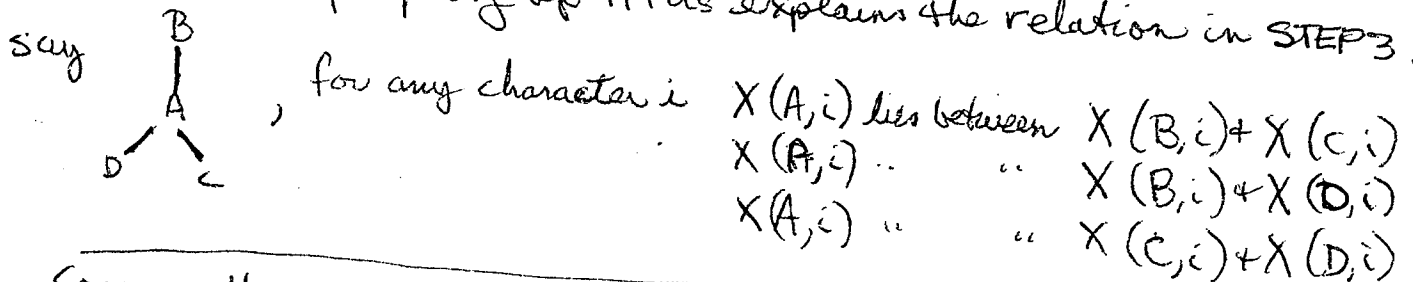 explains the relation in STEP 3.
say B
A
D C
, for any character i X(A,i) lies between X(B,i) + X(C,i)
X(A,i) " " X(B,i) + X(D,i)
X(A,i) " " X(C,i) + X(D,i)